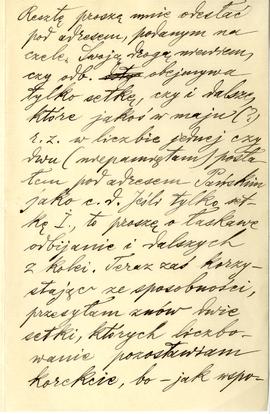 Resztę proszę mnie odesłać
pod adresem, podanym na
czele. Swoją drogą niewiem,
czy odb. obejmywa
tylko setkę, czy i dalsze,
które jakoś w maju (?)
r. z. w liczbie jednej czy
dwu (niepamiętam) posła-
łem pod adresem Pańskim
jako c. d. Jeśli tylko set-
kę I, to proszę o łaskawe
odbijanie i dalszych
z kolei. Teraz zaś korzy-
stając ze sposobności,
przesyłam znów dwie
setki, których liczbo-
wanie pozostawiam
korekcie, bo – jak wspo-